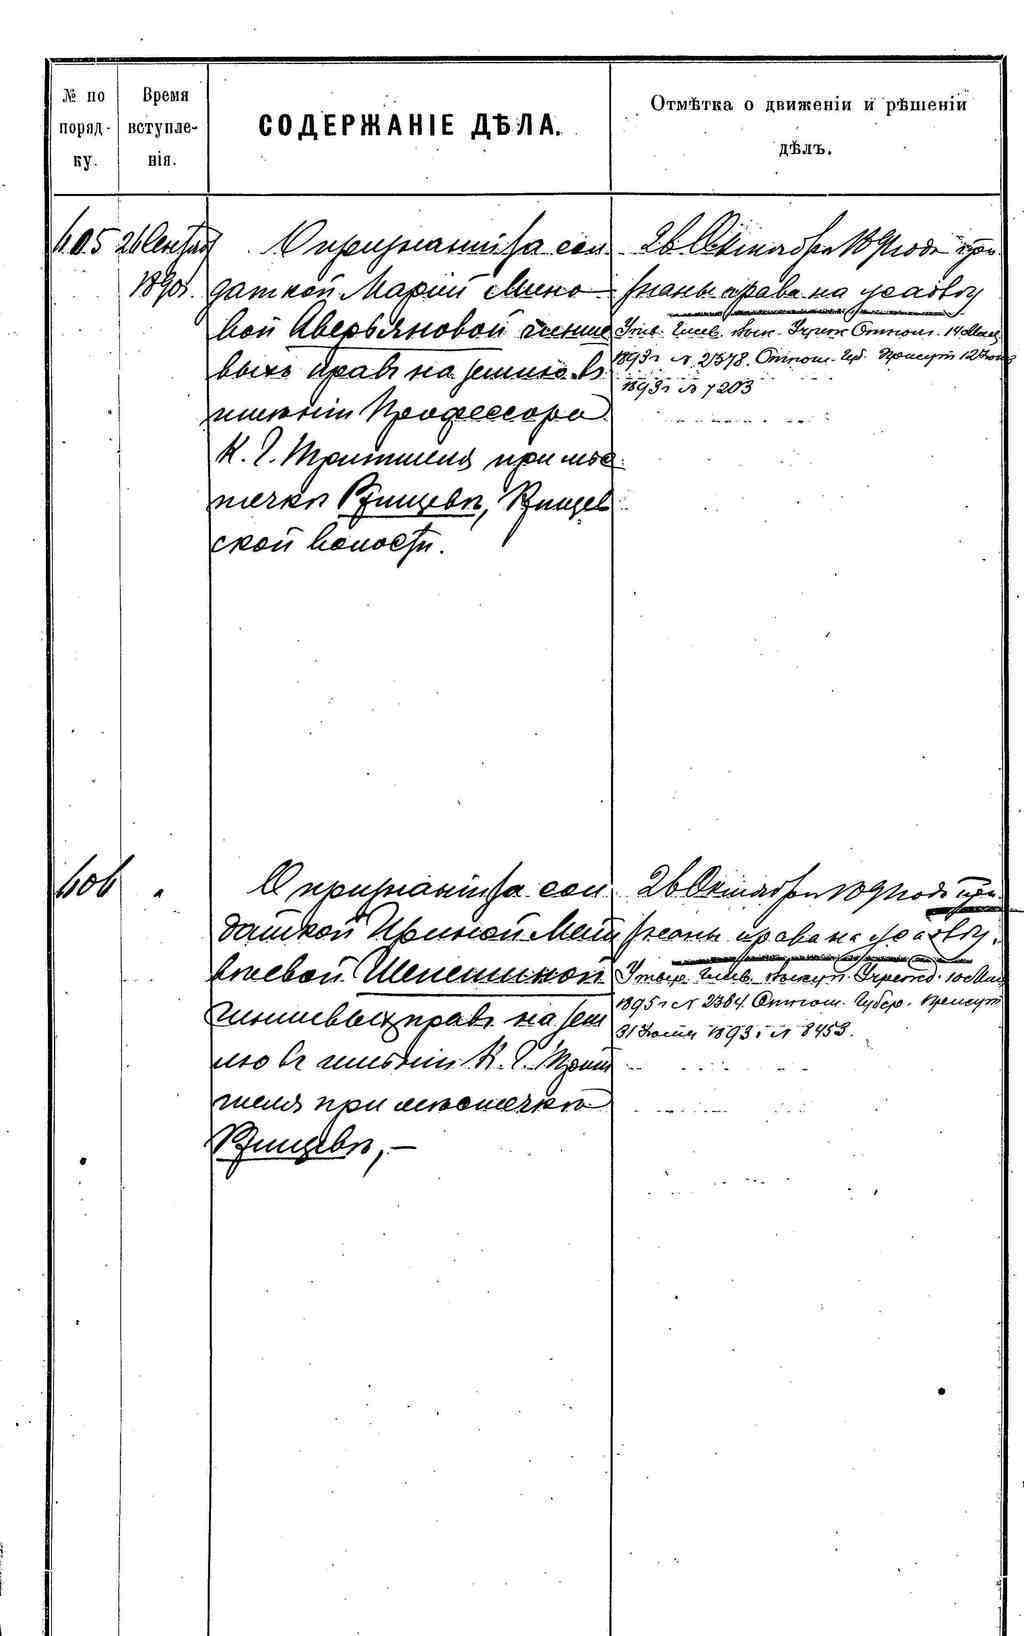 № по порядку.
Время вступленія.
СОДЕРЖАНІЕ ДѢЛА.
Отмѣтка о движеніи и рѣшеніи дѣлъ.
605
26 Сентяб
1890г.
О признаніи за сол
даткой Маріей Мино
вой Аверьяновой чинше
выхъ правъ на землю въ
имѣніи Профессора
К. Г. Тритшеля при мѣс
течкѣ Ржищевѣ, Ржищев
ской волости.
26 Октября 1891 года при
знаны права на усадьбу
Утв. Глав. Вык. Учреж Отнош. 14 Мая
1893 г № 2378. Отнош. Губ. Присут 12 Іюня
1893 г № 7203
606
"
О признаніи за сол
даткой Ириной Мат
вѣевой Шепелиной
чиншевыхъ правъ на зем
лю въ имѣніи К. Г. Трит
шеля при мѣстечкѣ
Ржищевѣ, —
26 Октября 1891 года при
знаны права на усадьбу.
Утвер. Глав. Выкуп. Учрежд. 10 Мая
1893 г № 2364 Отнош. Губер. Присут
31 Іюля 1893 г № 8453.